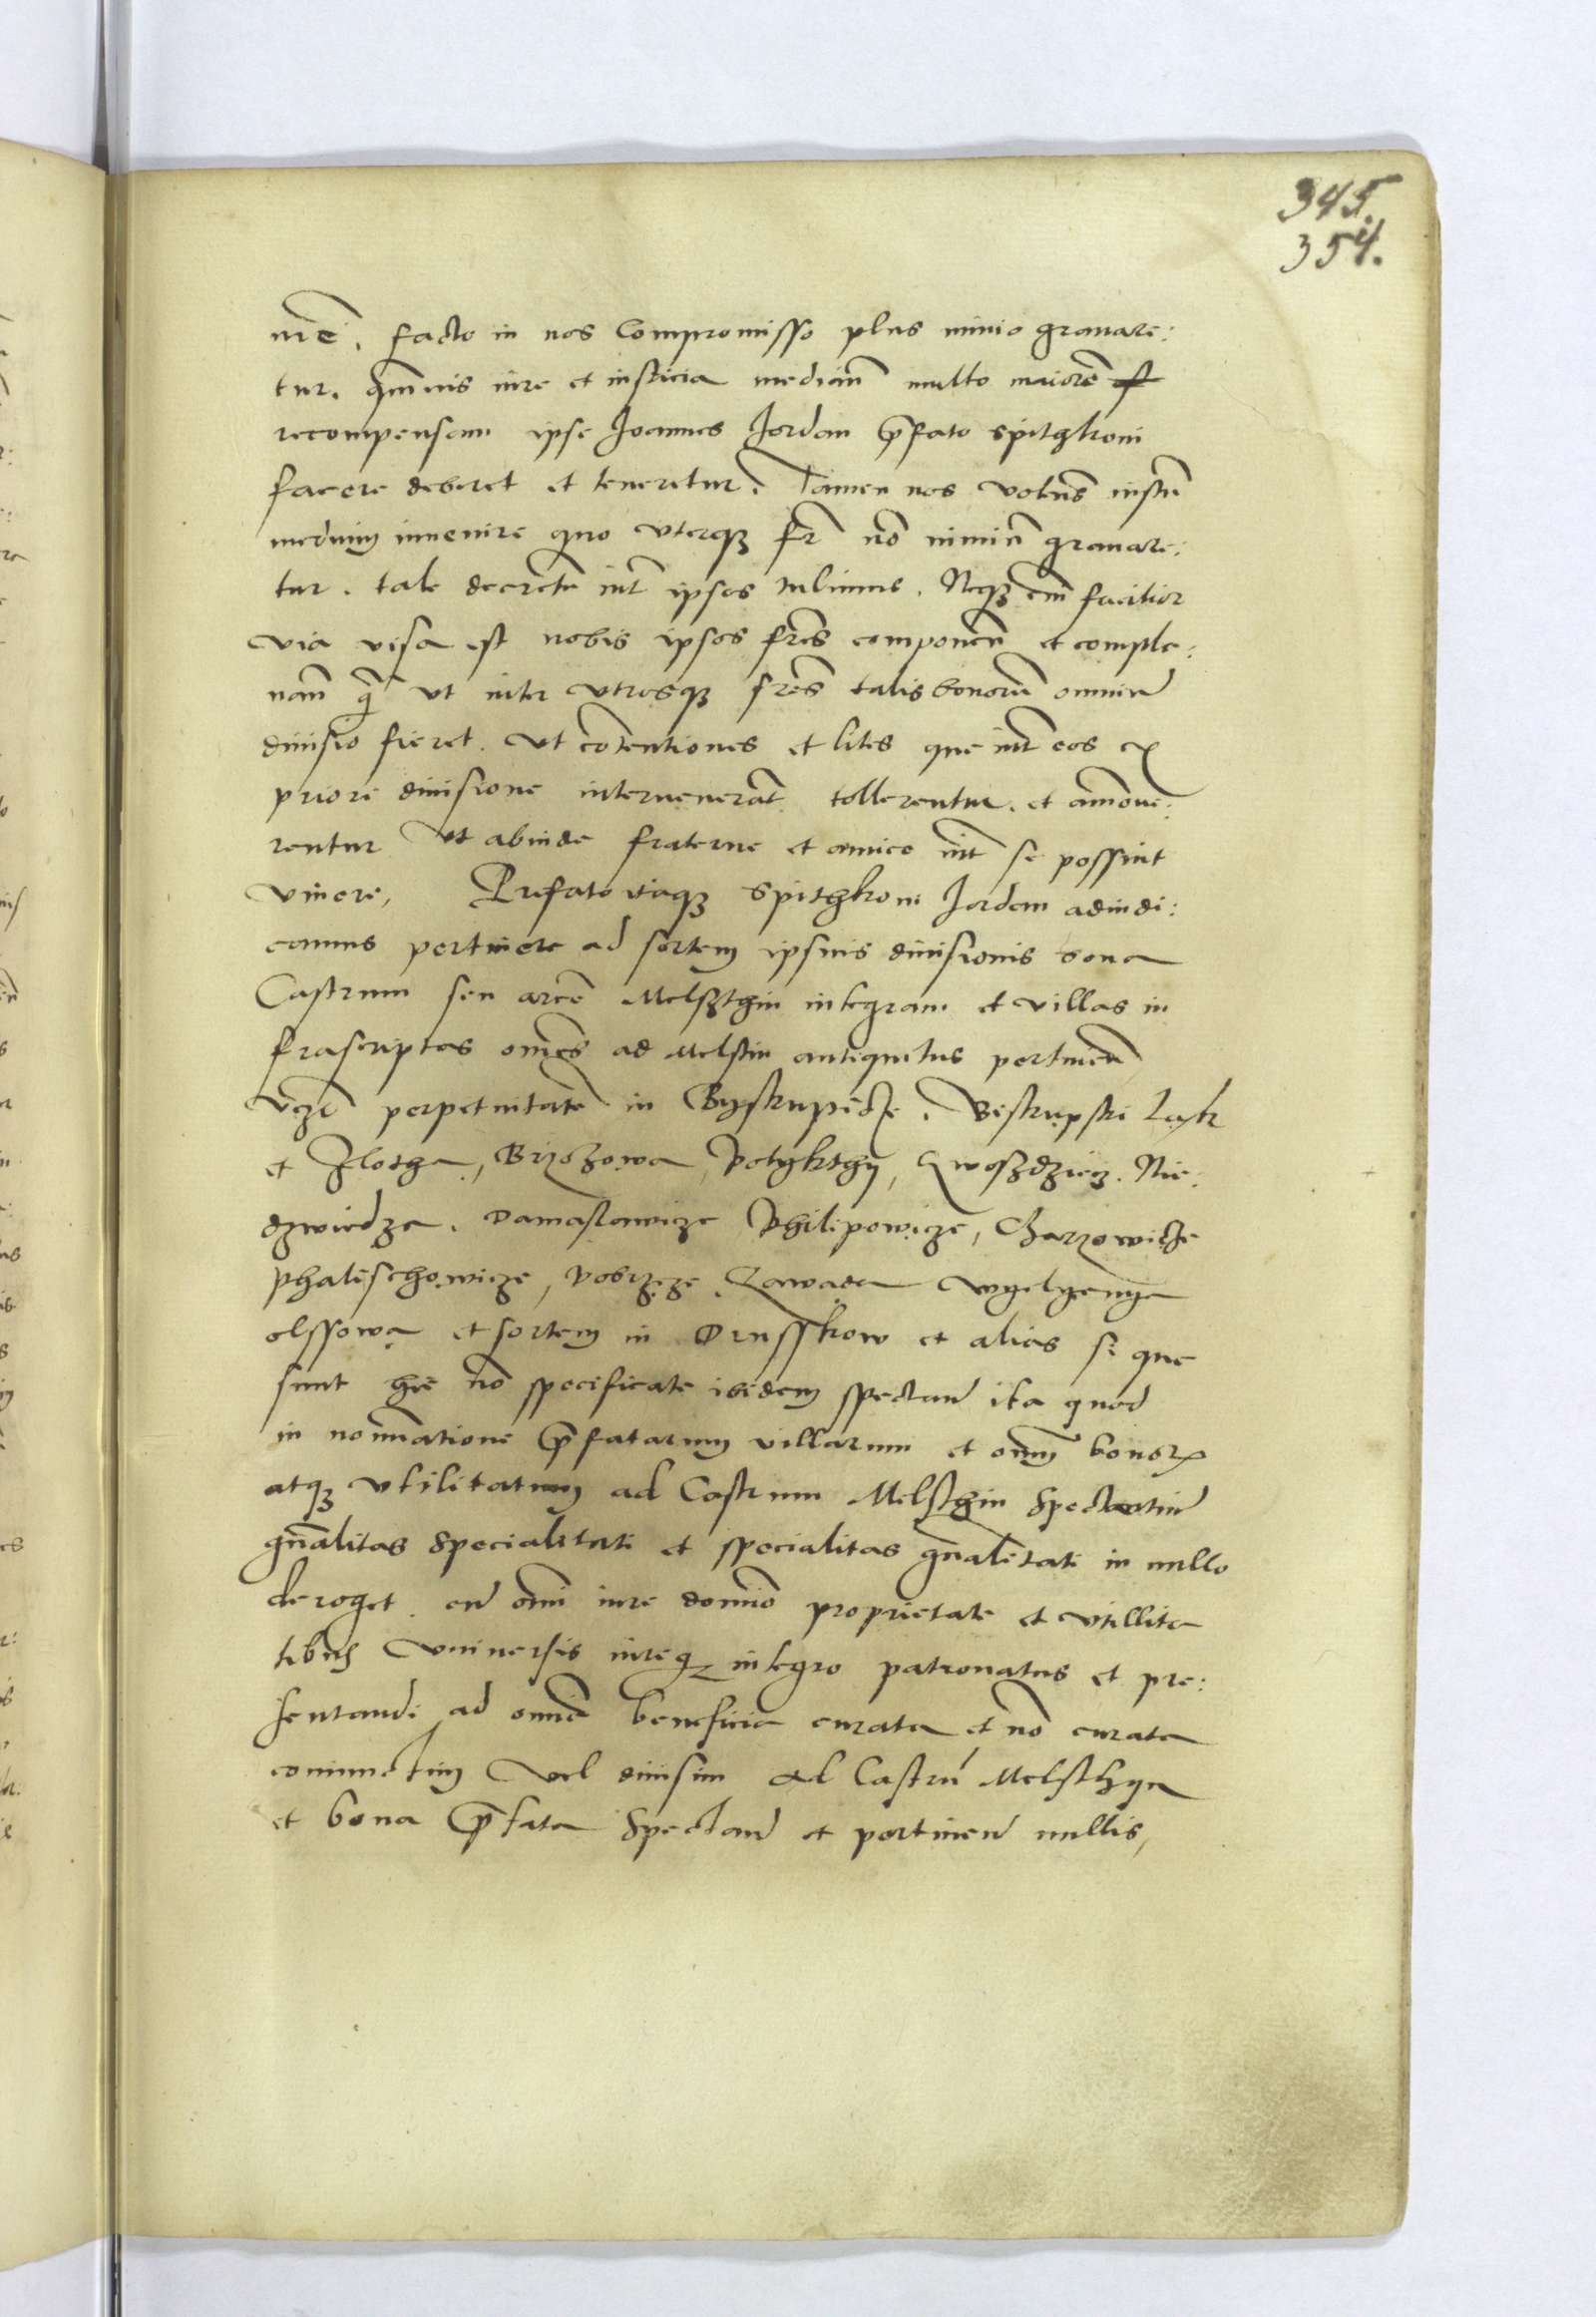 345.
354.
nre. facto in nos Compromisso plus nimio grauare:
tur. qmuis iure et insticia median multo maiorē
recompensam ipse Joannes Jordan p̄fato spitghoni
facere deberet et teneretur. Tamen nos volens iustū
medium inuenire quo vterqʒ fr̄ nō nimiū grauare:
tur. tale decretū int̄ ipsos tulimus. Neqʒ em̄ facilior
via visa est nobis ipsos fr̄es componēn et comple:
nan̄ q̄ ut inter vtrosqʒ fr̄es talis bonorū omniū
diuisio fieret. Ut cōtentiones et lites que int̄ eos ex
priore diuisione interuenerāt tollerentur. et amoue:
rentur Ut abinde fraterne et amice int̄ se possint
viuere, Prefato itaqʒ Spitghoni Jordan adiudi:
camus pertinere ad sortem ipsius diuisionis bona
Castrum seu arcē Melsʒthin integram et villas in
frascriptas om̄es ad Melstin antiquitus pertinen̄
perpetuitatē in Byskupicze. Biskupski Lask
et Zlotha, Brzozowa, Polykthy, Gwoszdziecz. Nie:
dzwiedza. Damaslawicze Philipowicze, Charzowicze
Phalischowicze, Pobrzeze Zawada wyelyemya
olssowa et sortem in Drusskow et alias si que
sunt hic nō specificate ibidem spectan̄ ita quod
in nominatione p̄fatarum villarum et om̄m bonorꝝ
atqʒ vtilitatum ad Castrum Melsthin Spectantiū
gn̄alitas Specialitati et specialitas gn̄alitati in nullo
deroget. cū om̄i iure domīo proprietate et vtillita
tibus vniuersis iureqʒ integro patronatus et pre:
sentandi ad omnia beneficia curata et nō curata
coniunctim vel diuisim ad Castrū Melsthyn
et bona p̄fata Spectan̄ et pertinen̄ nullis,